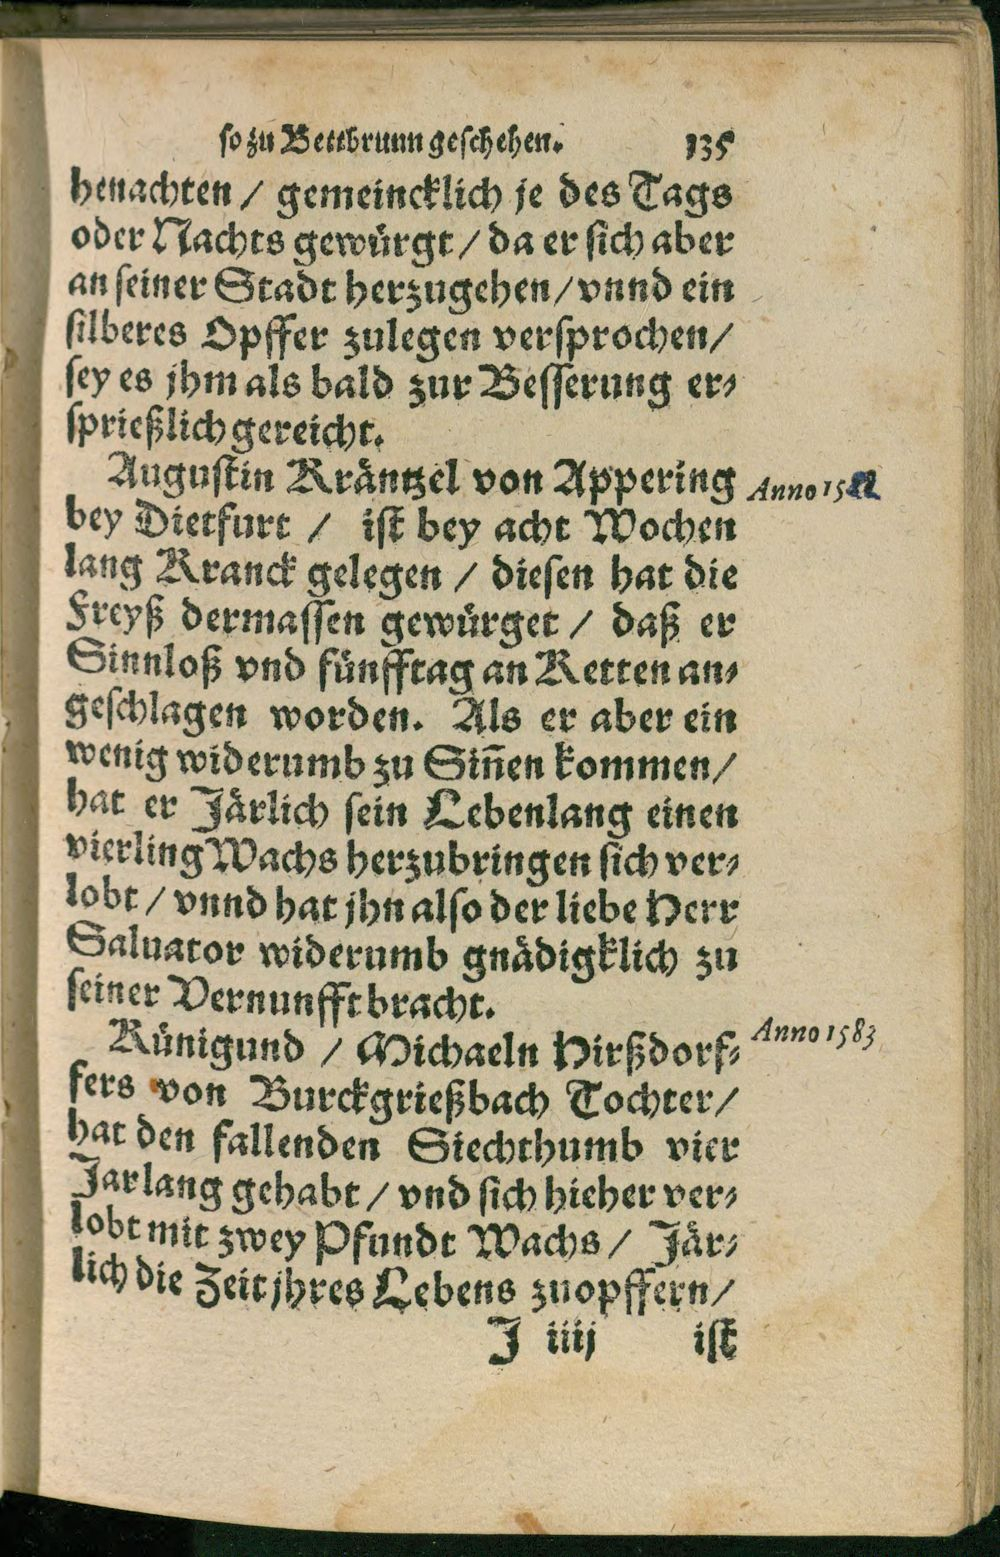 so zu Bettbrunn geschehen. 135
henachten / gemeincklich je des Tags
oder Nachts gewürgt / da er sich aber
an seiner Stadt herzugehen / vnnd ein
silberes Opffer zulegen versprochen /
sey es jhm als bald zur Besserung er-
sprießlich gereicht.
Augustin Kräntzel von Appering
Anno 15
bey Dietfurt / ist bey acht Wochen
lang Kranck gelegen / diesen hat die
Freyß dermassen gewürget / daß er
Sinnloß vnd fünfftag an Ketten an-
geschlagen worden. Als er aber ein
wenig widerumb zu Siñen kommen /
hat er Järlich sein Lebenlang einen
vierling Wachs herzubringen sich ver-
lobt / vnnd hat jhn also der liebe Herr
Saluator widerumb gnädigklich zu
seiner Vernunfft bracht.
Künigund / Michaeln Hirßdorf-
Anno 1583
fers von Burckgrießbach Tochter /
hat den fallenden Siechthumb vier
Jar lang gehabt / vnd sich hieher ver-
lobt mit zwey Pfundt Wachs / Jär-
lich die Zeit jhres Lebens zuopffern /
J iiij ist